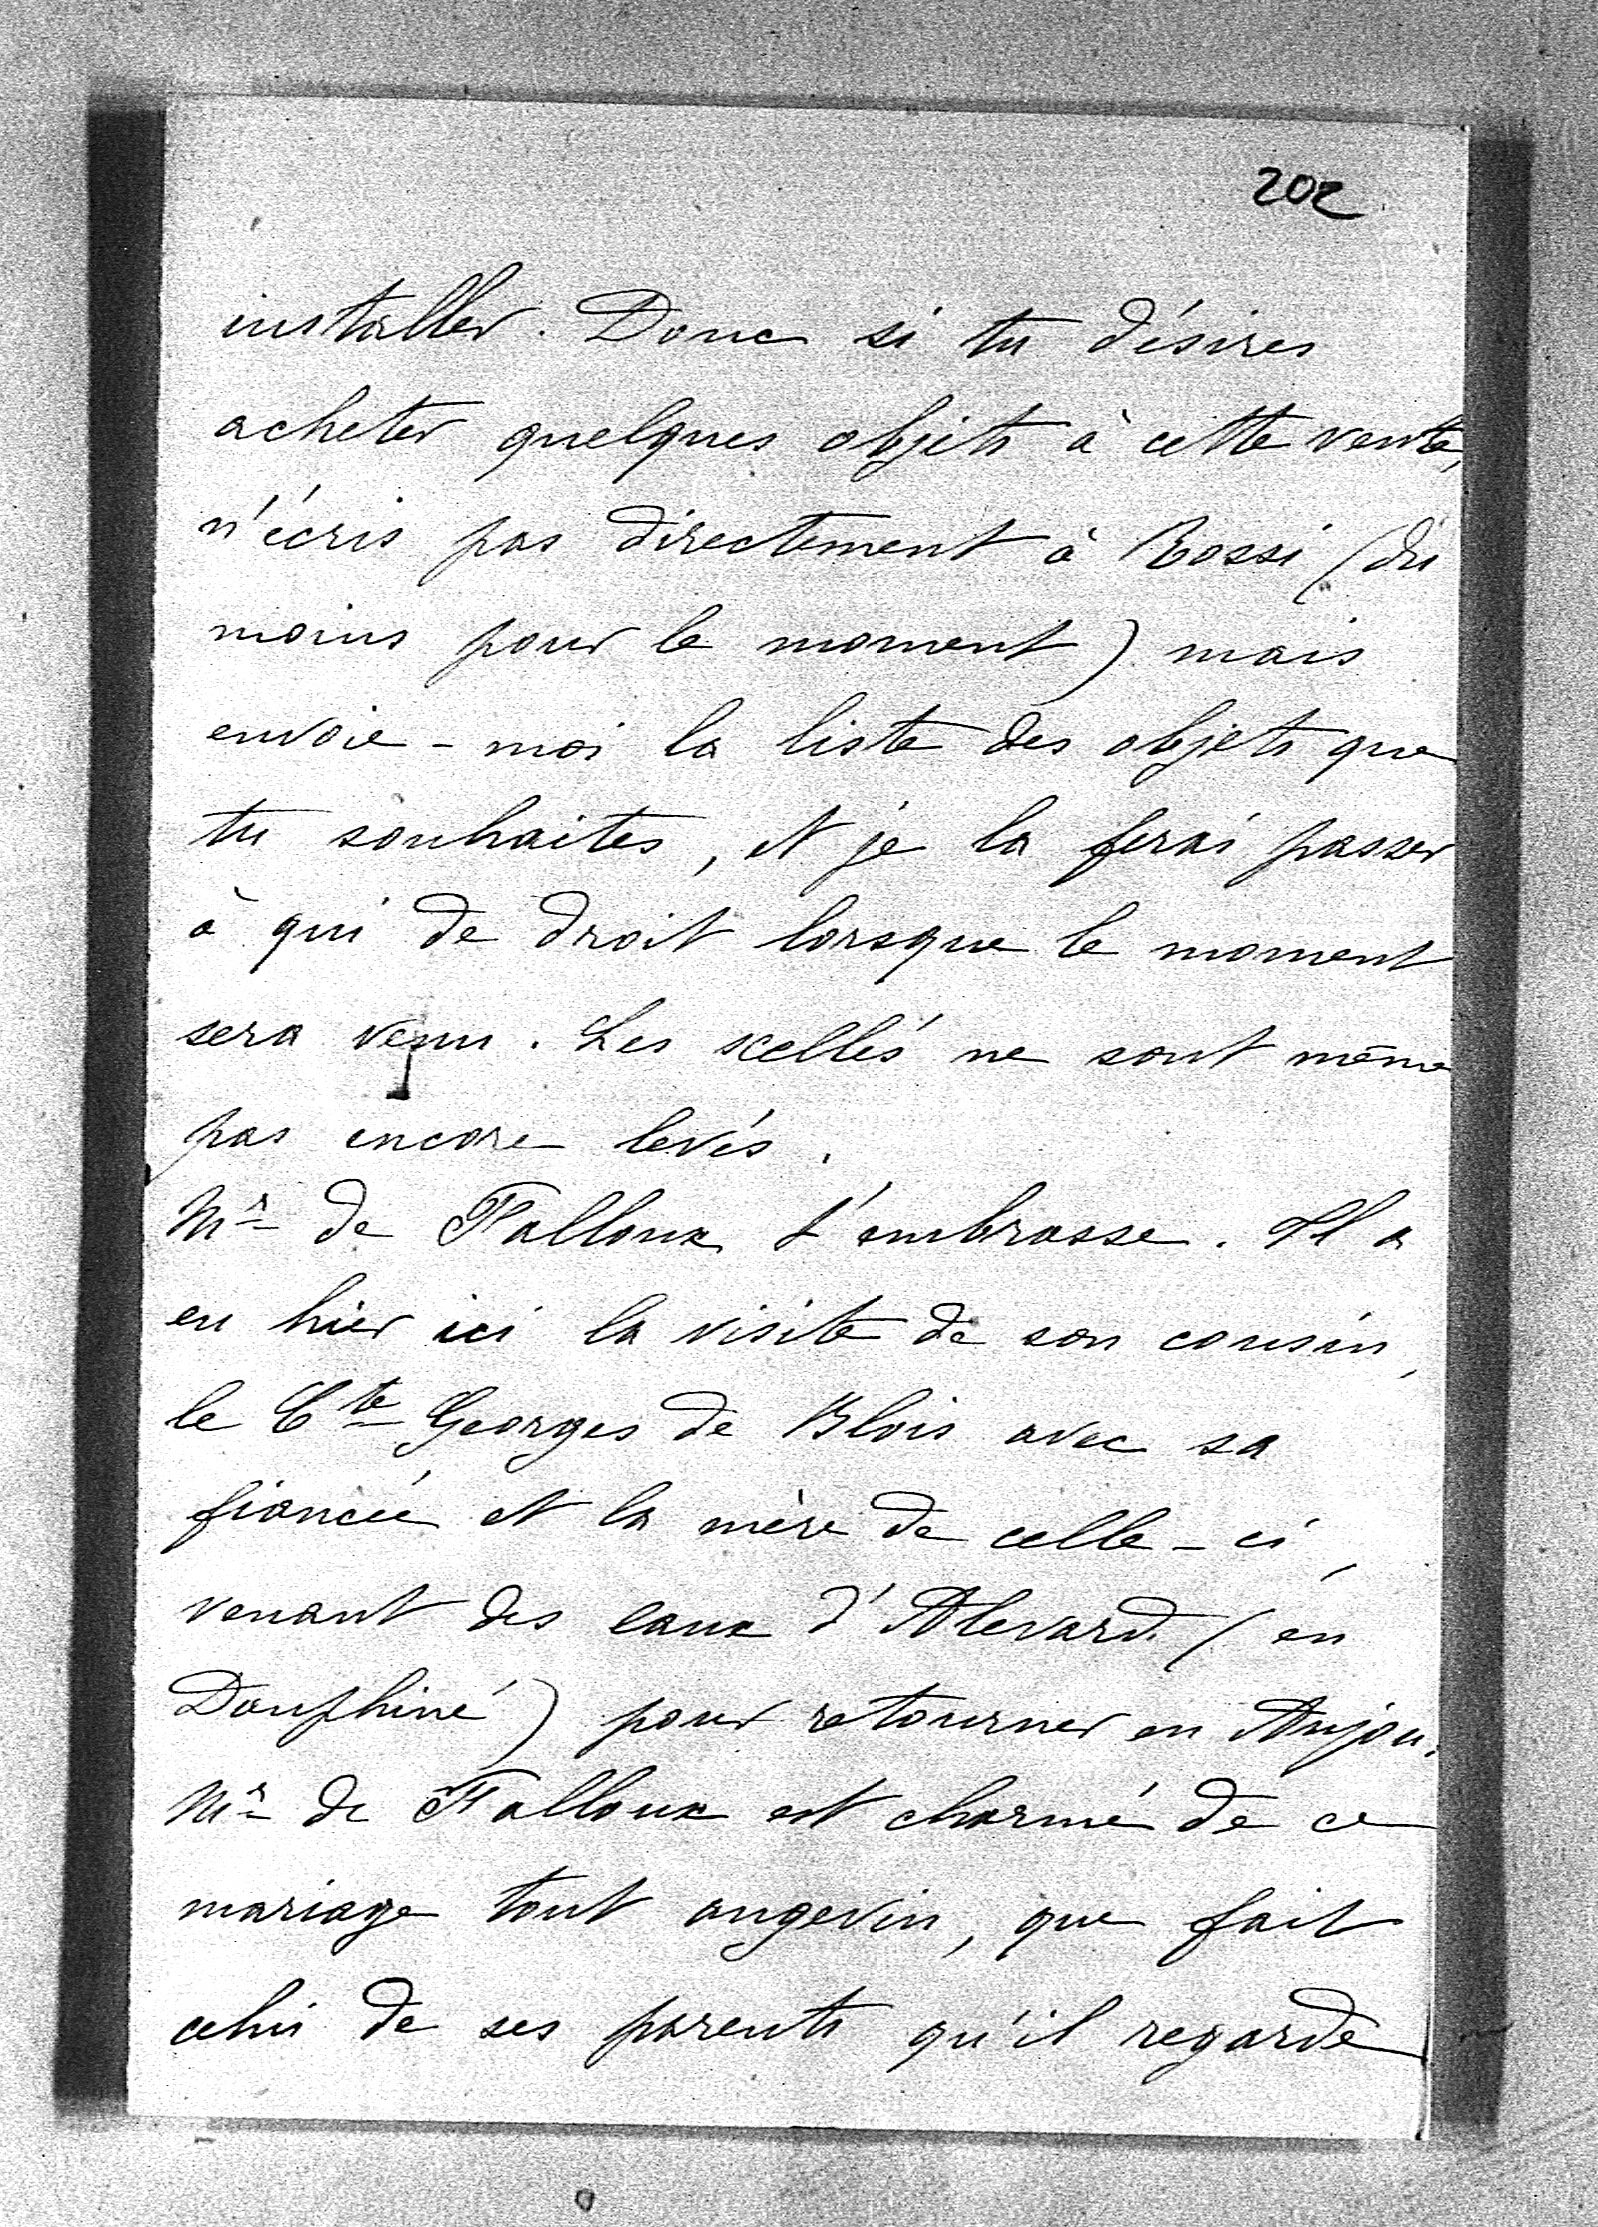 202
installer. Donc si tu désires
acheter quelques objets à cette vente,
n'écris pas directement à Rossi (du
moins pour le moment) mais
envoie-moi la liste des objets que
tu souhaites, et je la ferai passer
à qui de droit lorsque le moment
sera venu. Les scellés ne sont même
pas encore levés.
Mr de Falloux t'embrasse. Il a
eu hier ici la visite de son cousin,
le Cte Georges de Blois avec sa
fiancée et la mère de celle-ci,
venant des eaux d'Allevard (en
Dauphiné) pour retourner en Anjou.
Mr de Falloux est charmé de ce
mariage tout angevin, que fait
celui de ses parents qu'il regarde